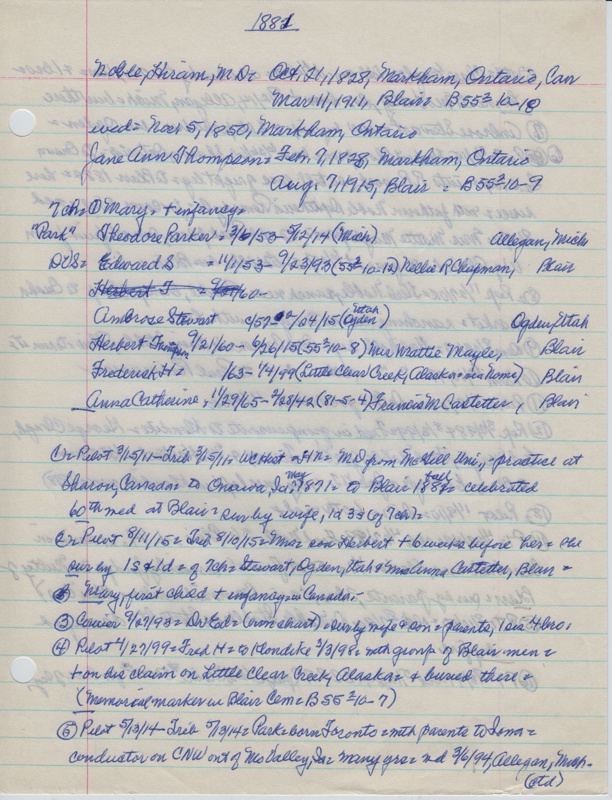 1881
Noble, Hiram, M.D= Oct, 21, 1828, Markham, Ontario, Can
Mar 11, 1911, Blair= B55½ 10-10
wed= Nov 5, 1850, Markham, Ontario
Jane Ann Thompson= Feb. 7, 1828, Markham, Ontario
Aug. 7, 1915, Blair = B55½ 10-9
7 ch= ① Mary, = + infancy=
"Park" Theodore Parker = 3/6/53- 5/12/14 (Mich) Allegan, Mich
Dr ES= Edward S = 11/1/53- 9/23/93 (55½ 10-12) Nellie R Chapman, Blair
Herbert T = 9/21/60-
Ambrose Stewart c/57- /04/15 (Utah Ogden) Ogden, Utah
Herbert Thompson 9/21/60- 6/26/15 (55½ 10-8) Mrs Mattie Mayle, Blair
Frederick H= /63- 1/4/99 (Little Clear Creek, Alaska= via Nome) Blair
Anna Catherine, 11/29/65- 2/28/42 (81-5-4) Francis M Castetter, Blair
①= Pilot 3/15/11- Trib 3/15/11= WC Hist = HN= M.D from McGill Uni,,- practice at
Sharon, Canada= to Onawa, Ia, May 1871= to Blair 1881= celebrated
60th wed at Blair= sur by wife, 1d 3s (of 7ch)=
②= Pilot 8/11/15= Trib 8/10/15= Mrs= son Herbert + 6 weeks before her= She
sur by 1s & 1d= of 7ch= Stewart, Ogden, Utah & Mrs Anna Castetter, Blair=
Mary, first child + infancy in Canada,-
③ Courier 9/27/93= Dr Ed= (own chart)= sur by wife & son= parents, 1 sis 4 bro=
④ Pilot 4/27/99= Fred H= to Klondike 3/3/98= with group of Blair men=
+ on his claim on Little Clear Creek, Alaska= & buried there=
(Memorial marker in Blair Cem= B55½ 10-7)
⑤ Pilot 5/13/14- Trib 5/13/14= Park= born Toronto= with parents to Iowa=
conductor on CNW out of Mo Valley, Ia= many yrs= wd 3/6/94, Allegan, Mich-
(ctd)